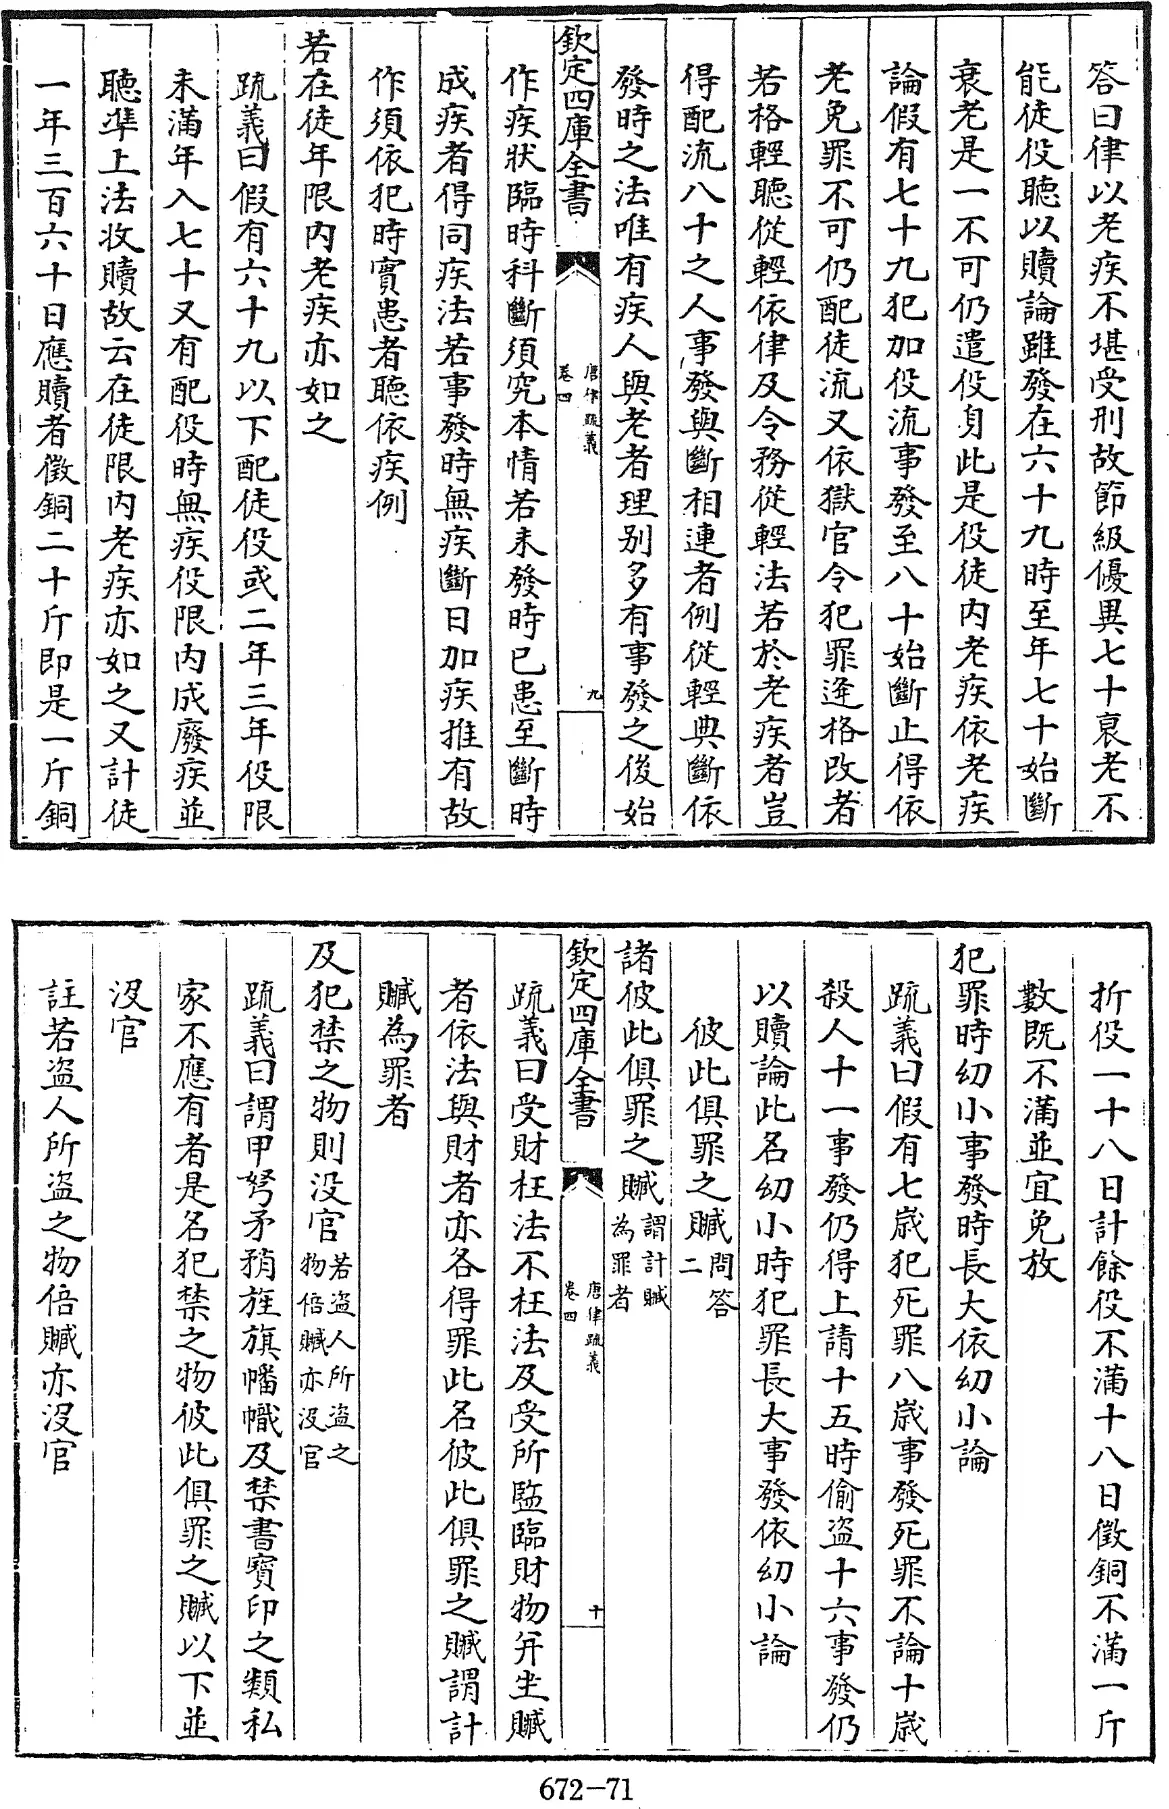 答曰律以老疾不堪受刑故節級優異七十衰老不
能徒役聽以贖論雖發在六十九時至年七十始斷
衰老是一不可仍遣役身此是役徒内老疾依老疾
論假有七十九犯加役流事發至八十始斷止得依
老免罪不可仍配徒流又依獄官令犯罪逢格改者
若格輕聽從輕依律及令務從輕法若於老疾者豈
得配流八十之人事發與斷相連者例從輕典斷依
發時之法唯有疾人與老者理别多有事發之後始
欽定四庫全書
唐律疏義
卷四
九
作疾狀臨時科斷須究本情若未發時已患至斷時
成疾者得同疾法若事發時無疾斷日加疾推有故
作須依犯時實患者聽依疾例
若在徒年限内老疾亦如之
疏義曰假有六十九以下配徒役或二年三年役限
未滿年入七十又有配役時無疾役限内成廢疾並
聽準上法收贖故云在徒限内老疾亦如之又計徒
一年三百六十日應贖者徵銅二十斤即是一斤銅
折役一十八日計餘役不滿十八日徵銅不滿一斤
數既不滿並宜免放
犯罪時幼小事發時長大依幼小論
疏義曰假有七歲犯死罪八歲事發死罪不論十歲
殺人十一事發仍得上請十五時偷盜十六事發仍
以贖論此名幼小時犯罪長大事發依幼小論
彼此俱罪之贓問答二
諸彼此俱罪之贓謂計贓為罪者
欽定四庫全書
唐律疏義
卷四
十
疏義曰受財枉法不枉法及受所監臨財物并坐贓
者依法與財者亦各得罪此名彼此俱罪之贓謂計
贓為罪者
及犯禁之物則沒官若盜人所盜之物倍贓亦沒官
疏義曰謂甲弩矛矟旌旗幡幟及禁書寶印之類私
家不應有者是名犯禁之物彼此俱罪之贓以下並
沒官
註若盜人所盜之物倍贓亦沒官
672-71